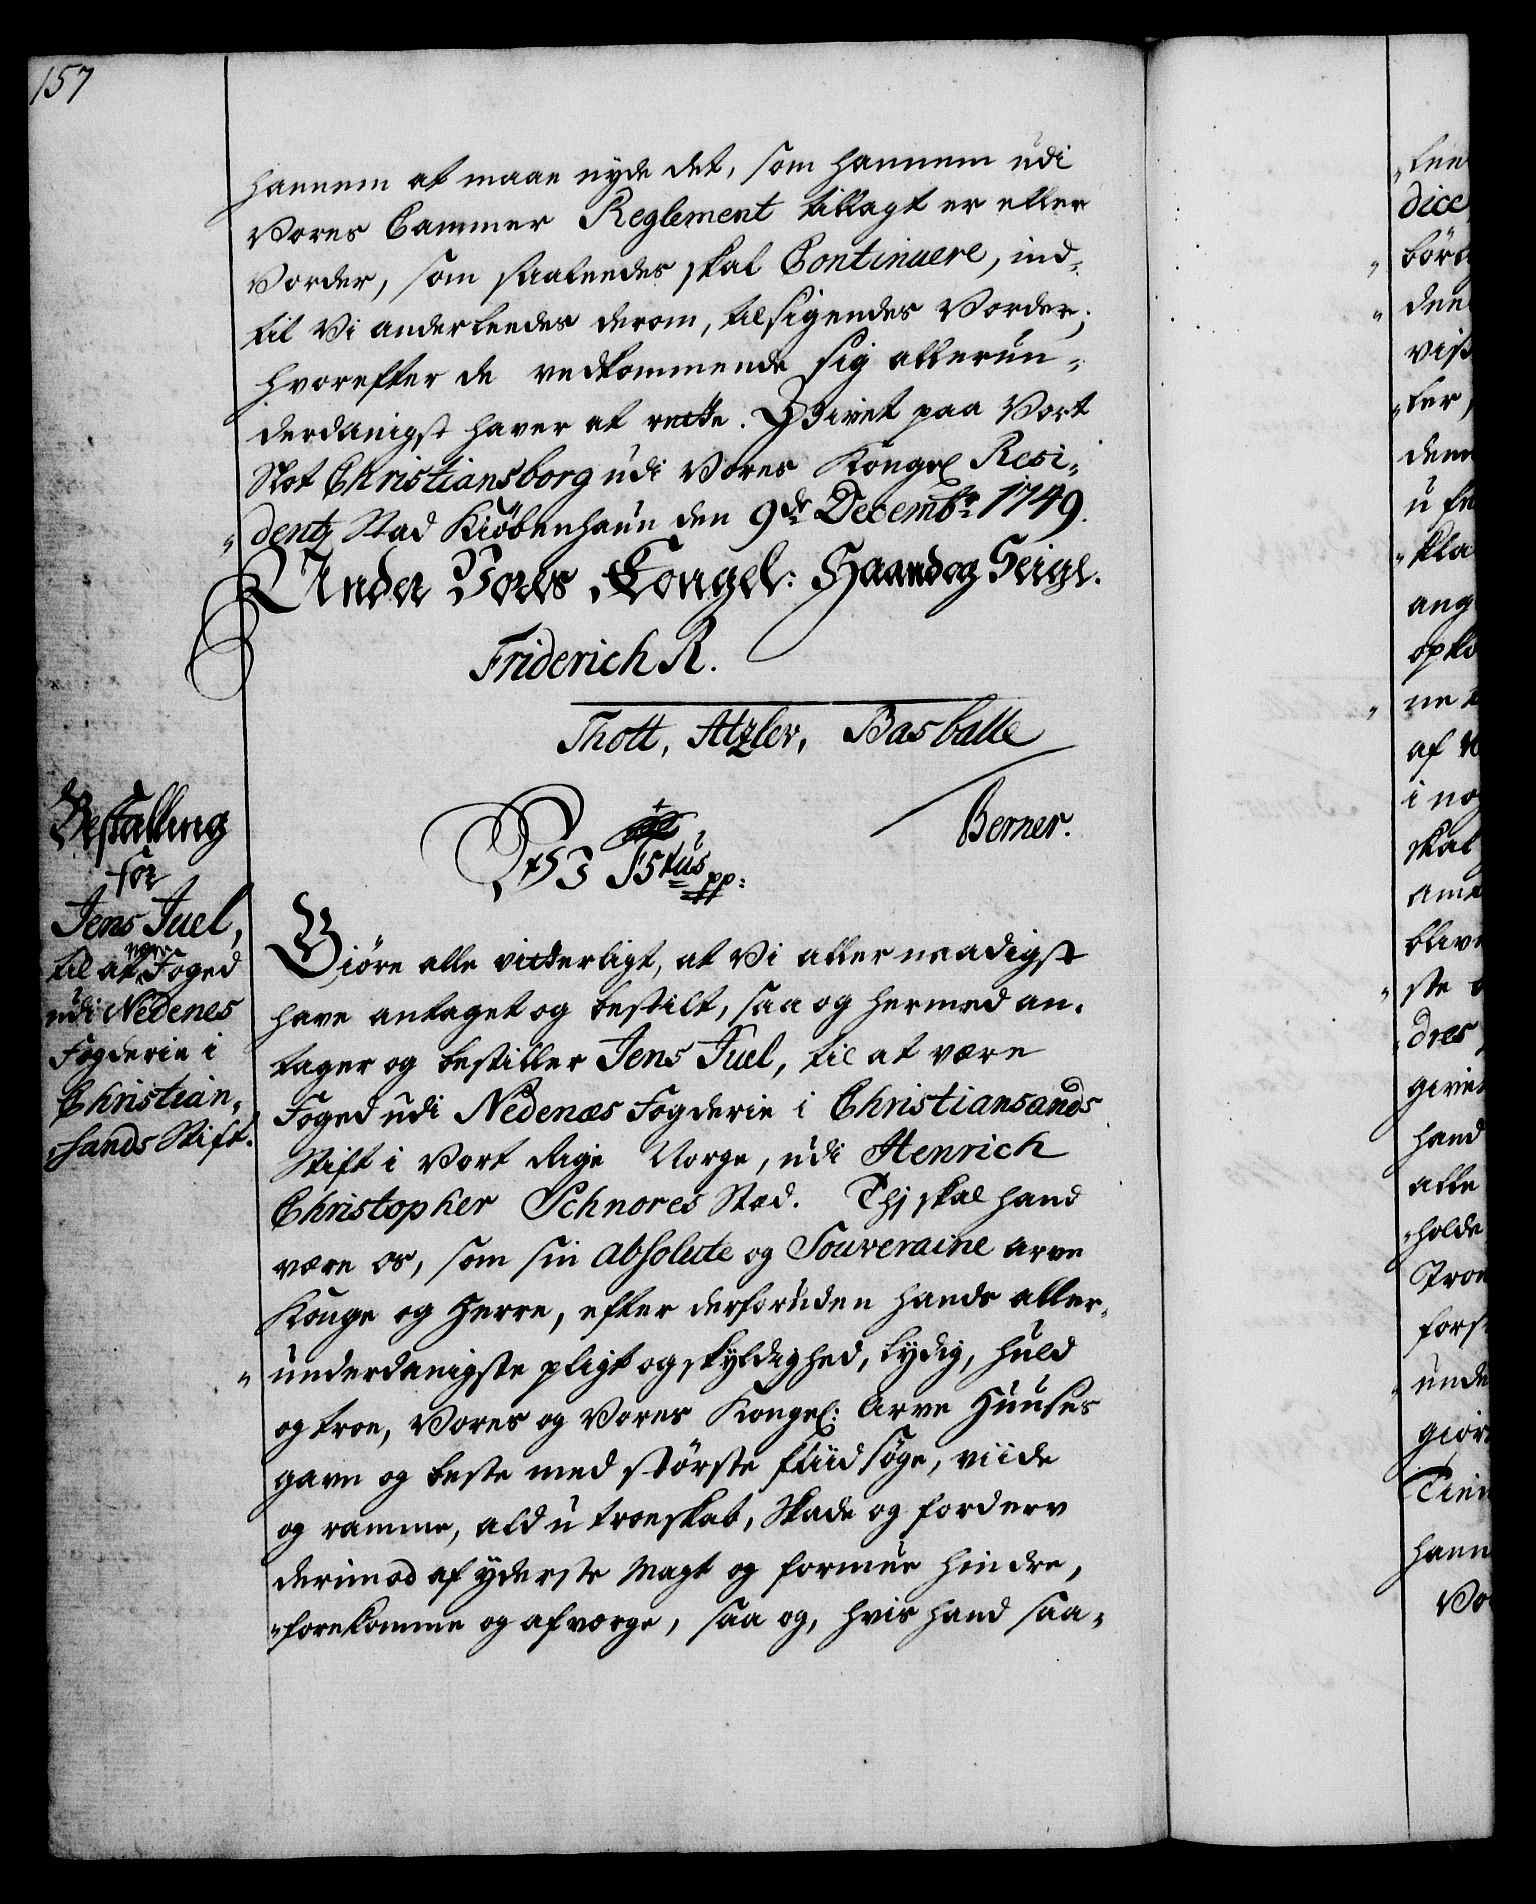 157
hannem at maae nyde det, som hannem udi
Vores Cammer Reglement tillagt er eller
Vorder, som saaleedes skal Continuere, ind-
til Vi anderleedes derom, tilsigendes Vorder;
hvorefter de vedkommende sig allerun-
derdanigst haver at rette. Givet paa Vort
Slot Christiansborg udi Vores Kongel Resi-
dentz Stad Kiöbenhaun den 9de Decembr 1749.
Under Vores Kongel: Haand og Seigl.
Friderich R.
Thott, Atzlev, Basballe
Berner.
Bestalling
for
Jens Juel,
til at være Foged
udi Nedenes
Fogderie i
Christian-
sands Stift.
F5tus pp:
Giöre alle vitterligt, at Vi allernaadigst
have antaget og bestilt, saa og hermed an-
tager og bestiller Jens Juel, til at være
Foged udi Nedenæs Fogderie i Christiansands
Stift i Vort Rige Norge, udi Henrich
Christopher Schnores Sted. Thj skal hand
være os, som sin absolute og Souveraine arve
Konge og Herre, efter derforuden hands aller-
underdanigste pligt og skyldighed, lydig, huld
og troe, Vores og Vores Kongel: Arve Huuses
gavn og beste med störste fliid söge, viide
og ramme, ald utroeskab, Skade og forderv
derimod af yderste Magt og formue hindre,
forekomme og afværge, saa og, hvis hand saa-
leе
dice
börl
den
vis
ler,
dem
u fr
skla
ang
opko
ne
af
i no
skal
ame
blive
ste
dres
givet
hand
alle
holde
Troe
fors
unde
giör
Tien
hann
Vo